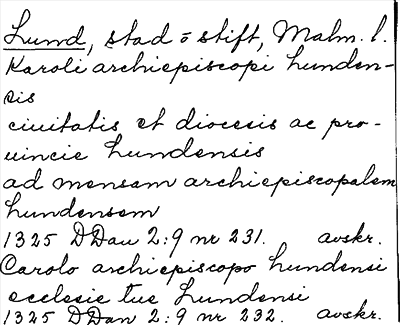 Lund, stad o stift, Malm. l.
Karoli archiepiscopi Lunden-
sis
ciuitatis et diocesis ac pro-
uincie Lundensis
ad mensam archiepiscopalem
Lundensem
1325 DDan 2:9 nr 231. avskr.
Carolo archiepiscopo Lundensi
ecclesie tue Lundensi
1325 DDan 2:9 nr 232. avskr.